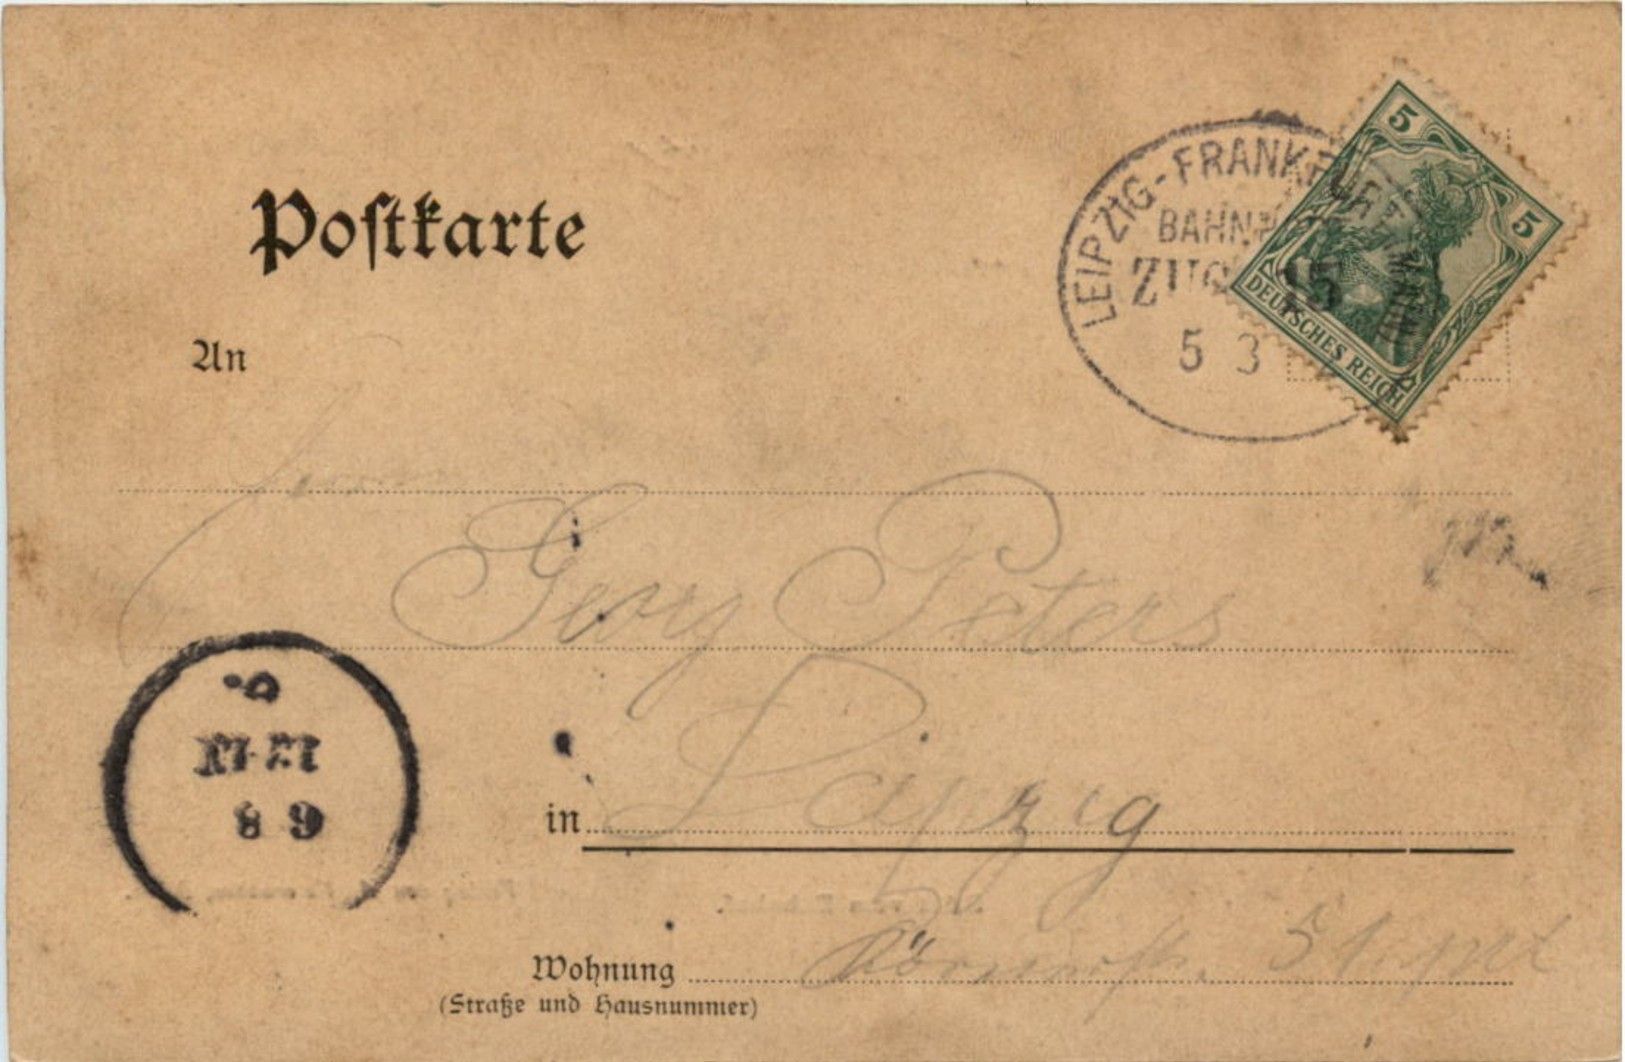 Postkarte
LEIPZIG-FRANKFURT (MAIN)
BAHNP
ZUG 15
5 3
5
5
DEUTSCHES REICH
An
Georg Peters
in Leipzig
Wohnung
(Straße und Hausnummer)